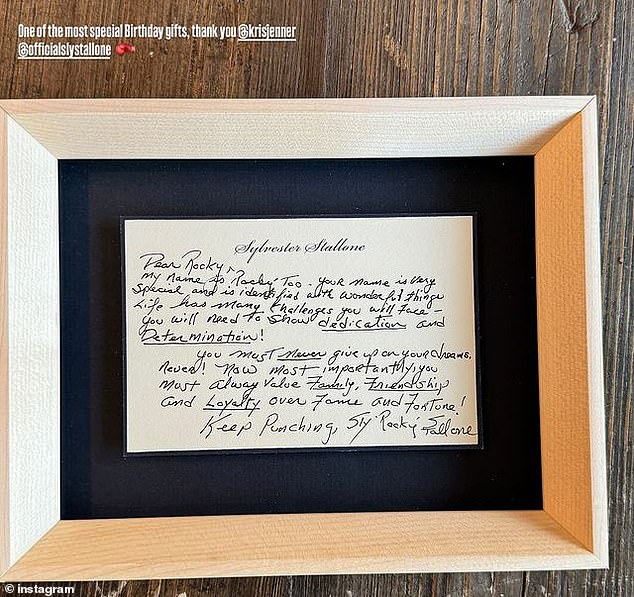 One of the most special Birthday gifts, thank you @krisjenner
@officialslystallone
Sylvester Stallone
Dear Rocky,
My name is 'Rocky' Too. Your name is Very
Special and is identified with wonderful things
Life has many challenges you will Face -
you will need to show dedication and
Determination!
you must never give up on your dreams.
Never! Now most importantly, you
must always value Family, Friendship
and Loyalty over Fame and Fortune!
Keep Punching, Sly 'Rocky' Stallone
instagram